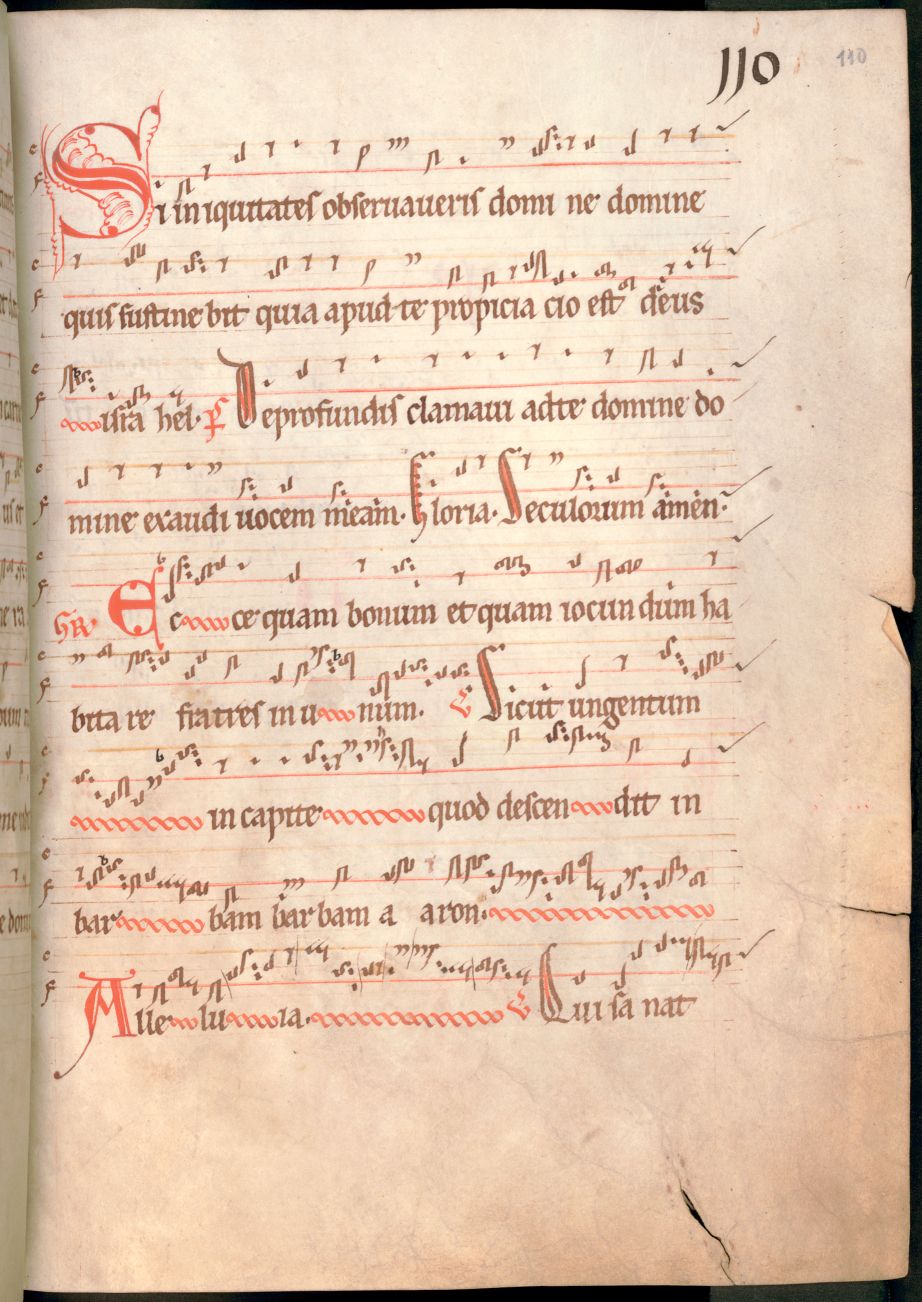 110 110
Si iniquitates obseruaueris domi ne domine
quis sustine bit quia apud te propicia cio est deus
isra hel. Ps De profundis clamaui ad te domine do
mine exaudi uocem meam. Gloria. Seculorum amen.
GR Ec ce quam bonum et quam iocun dum ha
bita re fratres in u num. V Sicut ungentum
in capite quod descen dit in
bar bam bar bam a aron.
Alle lu ia. V Qui sa nat